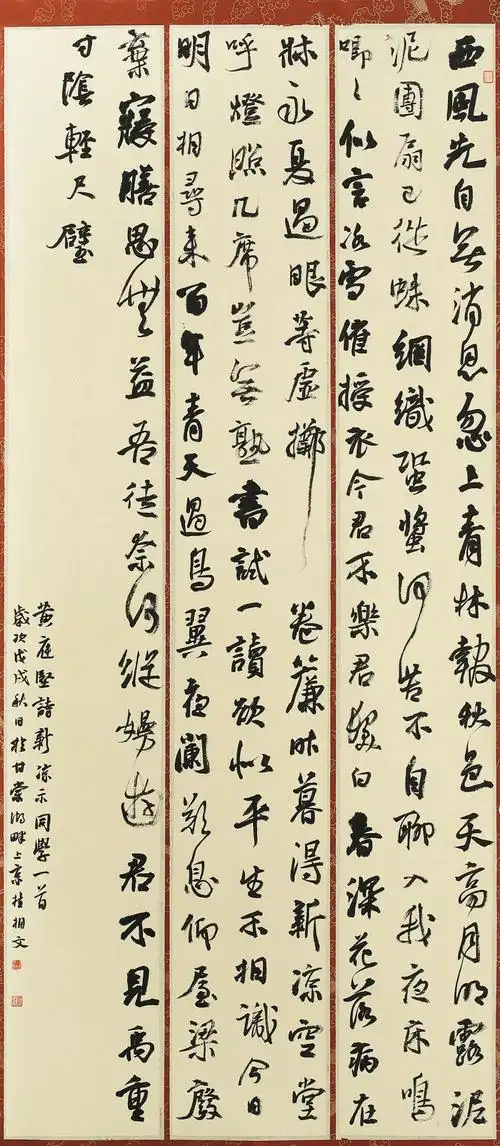 西風先自無消息忽上青林報秋色天高月明露泥
泥團扇已從蛛網織蛩螿何苦不自聊入我夜床鳴
唧々似言冰雪催授衣今君不樂君髮白春深花落病在
牀永夏過眼等虛擲 卷簾昨暮得新涼空堂
呼燈照几席豈無熟書試一讀欲似平生不相識今日
明日相尋來百年青天過鳥翼夜闌歎息仰屋梁廢
棄寢膳思無益吾徒奈何縱嫚遊君不見禹重
寸陰輕尺璧
黃庭堅詩新涼示同學一首
歲次戊戌秋日於甘棠湖畔上京桂相文